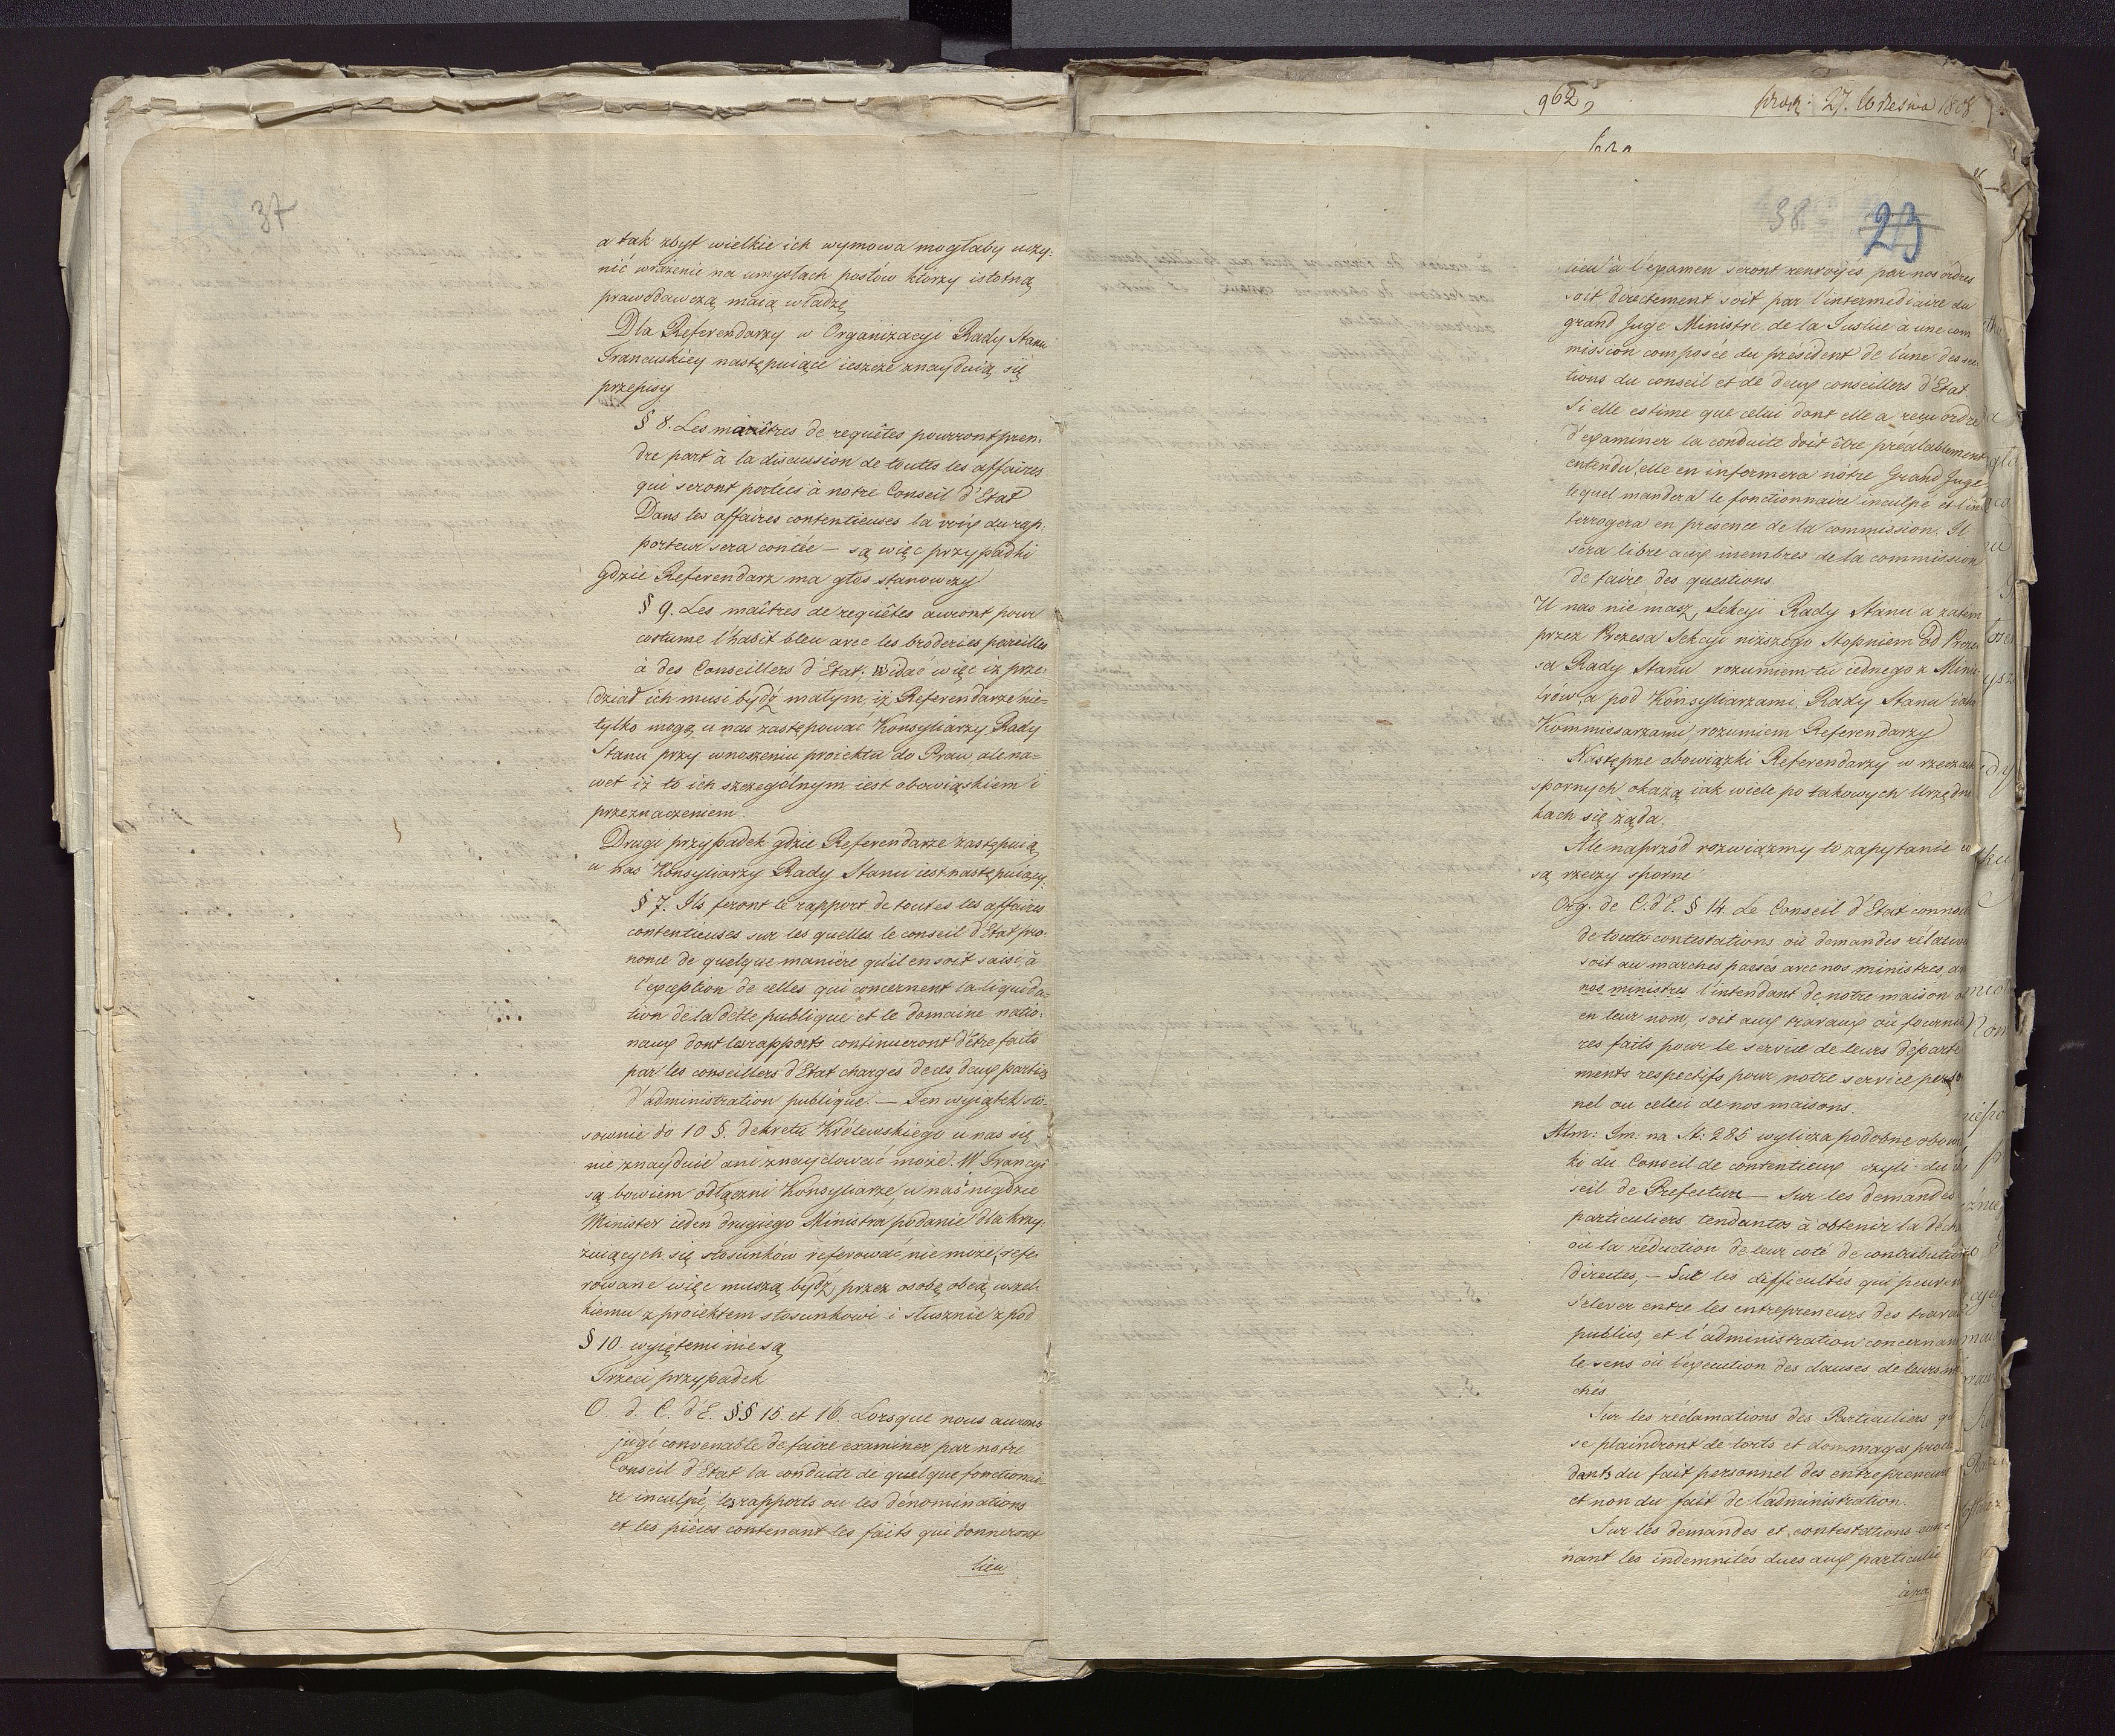 37
a tak zbyt wielkie ich wymowa mogłaby uczy:
nić wrażenie na umysłach posłów którzy istotną
prawodawczą maią władzę
Dla Réferendarzy w Organizacyi Rady Stanu
Francuskiey następuiące ieszcze znayduią się
przepisy
§ 8. Les maitres de requêtes pourront pren-
dre part à la discussion de toutes les affaires
qui seront portées à notre Conseil d'Etat
Dans les affaires contentieuses la voix du rap-
porteur sera contée — są więc przypadki
gdzie Referendarz ma głos stanowczy
§ 9. Les maîtres de requêtes auront pour
costume l'habit bleu avec les broderies pareilles
à des Conseillers d'Etat; widać więc iż prze-
dział ich musi bydź małym, iż Referendarze nie-
tylko mogą u nas zastępować Konsyliarzy Rady
Stanu przy wnoszeniu proiektu do Praw, ale na-
wet iż to ich szczególnym iest obowiąskiem i
przeznaczeniem.
Drugi przypadek gdzie Referendarze zastępuią
u nas Konsyliarzy Rady Stanu iest następuiący:
§ 7. Ils feront le rapport de toutes les affaires
contentieuses sur les quelles le conseil d'Etat pro-
nonce de quelque manière qu'il en soit saisi, à
l'exception de celles qui concernent la liquida-
tion de la dette publique et le domaine natio-
naux dont les rapports continueront d'être faits
par les conseillers d'Etat charges de ces deux parties
d'administration publique. — Ten wyiątek sto-
sownie do 10 §. dekretu Królewskiego u nas się
nie znayduie ani znaydować może. W Francyi
są bowiem odłączni Konsyliarze, u nas nigdzie
Minister ieden drugiego Ministra podanie dla krzy-
żuiących się stosunków referować nie może, refe-
rowane więc muszą bydź przez osobę obcą wszel-
kiemu z proiektem stosunkowi i słusznie z pod
§ 10. wyiętemi nie są
Trzeci przypadek
O. d. C. d'E. §§ 15. et 16. Lorsque nous aurons
jugé convenable de faire examiner par notre
Conseil d'Etat la conduite de quelque fonctionai-
re inculpé, les rapports ou les dénominations
et les pièces contenant les faits qui donneront
lieu
962
27. Września 1808
38 23
lieu à l'examen seront renvoyés par nos ordres
soit directement soit par l'intermediaire du
grand Juge Ministre de la Justice à une com
mission composée du président de l'une des sec
tions du conseil et de deux conseillers d'Etat.
Si elle estime que celui dont elle a reçu ordre
d'examiner la conduite doit être préalablement
entendu, elle en informera nôtre Grand Juge
lequel mandera le fonctionnaire inculpé et l'in
terrogera en présence de la commission. Il
sera libre aux membres de la commission
de faire des questions.
U nas nie masz Sekcyi Rady Stanu a zatem
przez Prezesa Sekcyi niższego stopniem od Preze
sa Rady Stanu rozumiem tu iednego z Minis
trów, a pod Konsyliarzami Rady Stanu iako
Kommissarzami, rozumiem Referendarzy
Następne obowiązki Referendarzy w rzeczach
spornych okażą iak wiele po takowych Urzędni
kach się żąda.
Ale naprzód rozwiążmy to zapytanie co
są rzeczy sporne
Org. de C. d'E. § 14. Le Conseil d'Etat connoi
de toutes contestations où demandes rélatives
soit au marches passés avec nos ministres,
nos ministres l'intendant de notre maison
en leur nom, soit aux travaux où fournitu
res faits pour le service de leurs départe
ments respectifs pour notre service perso
nel ou celui de nos maisons.
Alm: Im: na St: 285 wylicza podobne obowią
ki du Conseil de contentieux czyli du
seil de Prefecture — Sur les demandes
particuliers tendantes à obtenir la décha
où la réduction de leur coté de contributions
directes, — Sur les difficultés qui peuven
s'elever entre les entrepreneurs des travau
publics, et l'administration concernant
le sens où l'execution des clauses de leurs mar
chés.
Sur les réclamations des Particuliers qui
se plaindront de torts et dommages procé
dants du fait personnel des entrepreneurs
et non du fait de l'administration.
Sur les demandes et contestations conce
nant les indemnités dues aux particulie